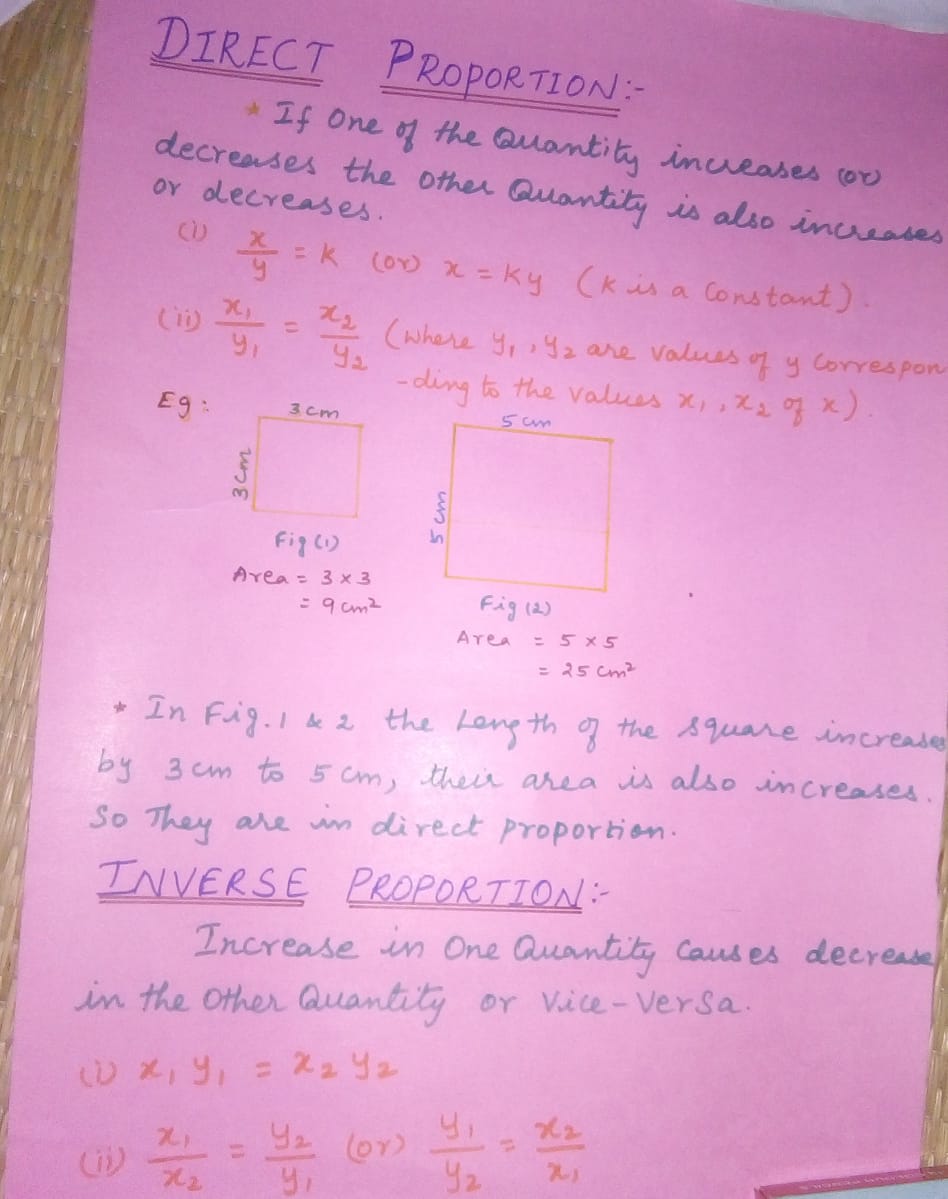 DIRECT PROPORTION:-
* If One of the Quantity increases (or)
decreases the other Quantity is also increases
or decreases.
(i) x/y = K (or) x = Ky (K is a Constant).
(ii) x₁/y₁ = x₂/y₂ (where y₁, y₂ are values of y Correspon
-ding to the values x₁, x₂ of x).
Eg:
3 cm
3 cm
Fig (1)
Area = 3 x 3
= 9 cm²
5 cm
5 cm
Fig (2)
Area = 5 x 5
= 25 cm²
* In Fig. 1 & 2 the Length of the square increases
by 3 cm to 5 cm, their area is also increases.
So They are in direct proportion.
INVERSE PROPORTION:-
Increase in One Quantity Causes decrease
in the Other Quantity or Vice-Versa.
(i) x₁ y₁ = x₂ y₂
(ii) x₁/x₂ = y₂/y₁ (or) y₁/y₂ = x₂/x₁